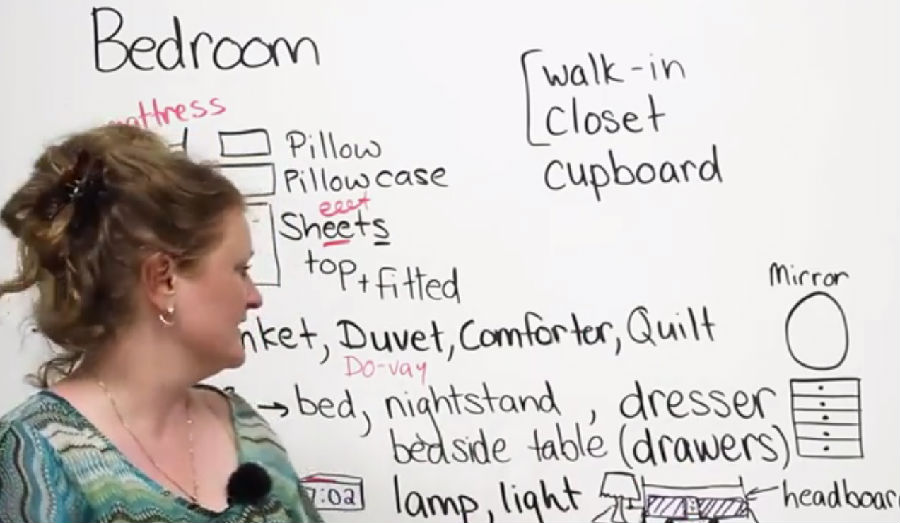 Bedroom
walk-in
closet
cupboard
Pillow
Pillowcase
eeet
Sheets
top + fitted
Mirror
Duvet, Comforter, Quilt
Do-vay
→ bed, nightstand, dresser
bedside table (drawers)
7:02 lamp, light